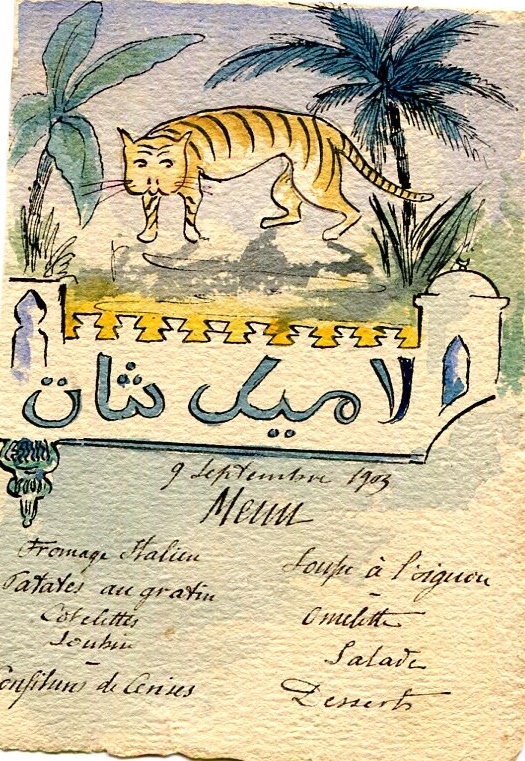 لاميك ثات
9 Septembre 1903
Menu
Fromage Italien
Patates au gratin
Côtelettes
Loubia
Confitures de Cerises
Soupe à l'oignon
Omelette
Salade
Desserts